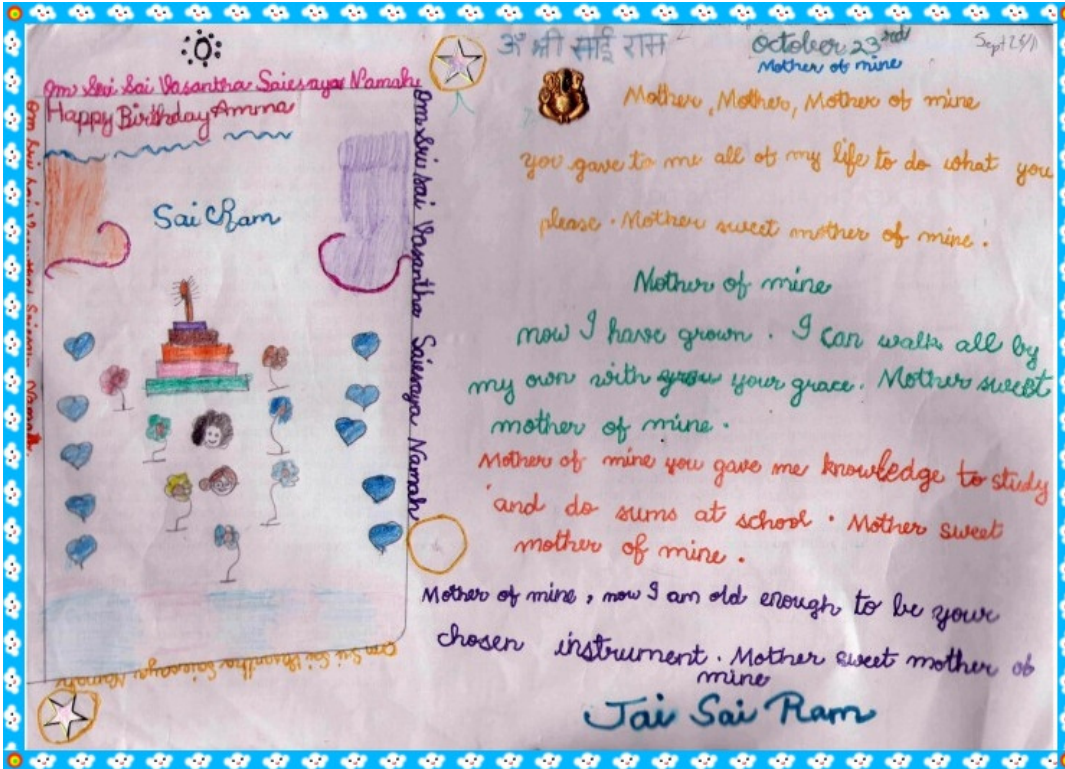 Om Sri Sai Vasantha Saiesaya Namahe
Happy Birthday Amma
Sai Ram
Om Sri Sai Vasantha Saiesaya Namah
Om Sri Sai Vasantha Saiesaya Namah
ॐ श्री साई राम
October 23rd
Mother of mine
Mother, Mother, Mother of mine
you gave to me all of my life to do what you
please. Mother sweet mother of mine.
Mother of mine
now I have grown. I can walk all by
my own with your grace. Mother sweet
mother of mine.
Mother of mine you gave me knowledge to study
and do sums at school. Mother sweet
mother of mine.
Mother of mine, now I am old enough to be your
chosen instrument. Mother sweet mother of
mine
Jai Sai Ram